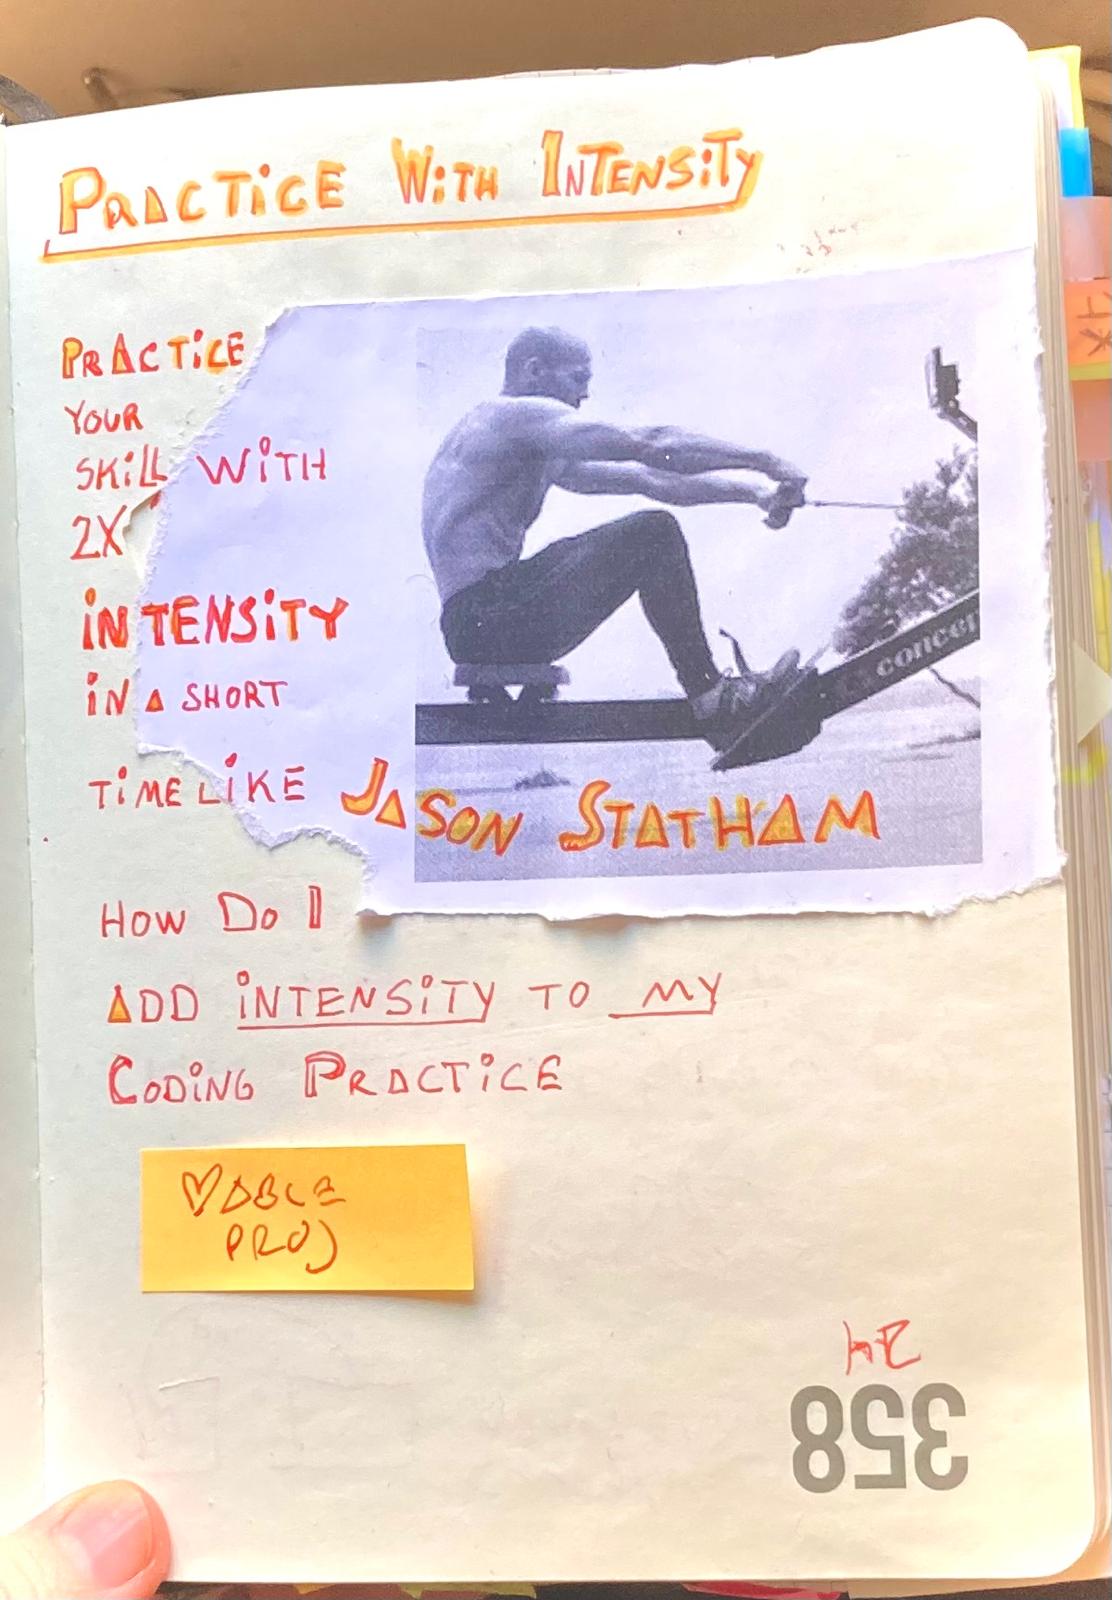 PRACTICE WITH INTENSITY
PRACTICE
YOUR
SKILL WITH
2X
INTENSITY
IN A SHORT
TIME LIKE JASON STATHAM
concep
HOW DO I
ADD INTENSITY TO MY
CODING PRACTICE
♡ABLE
PROJ
358